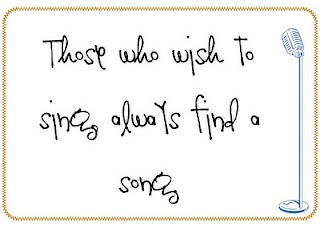 Those who wish to
sing always find a
song